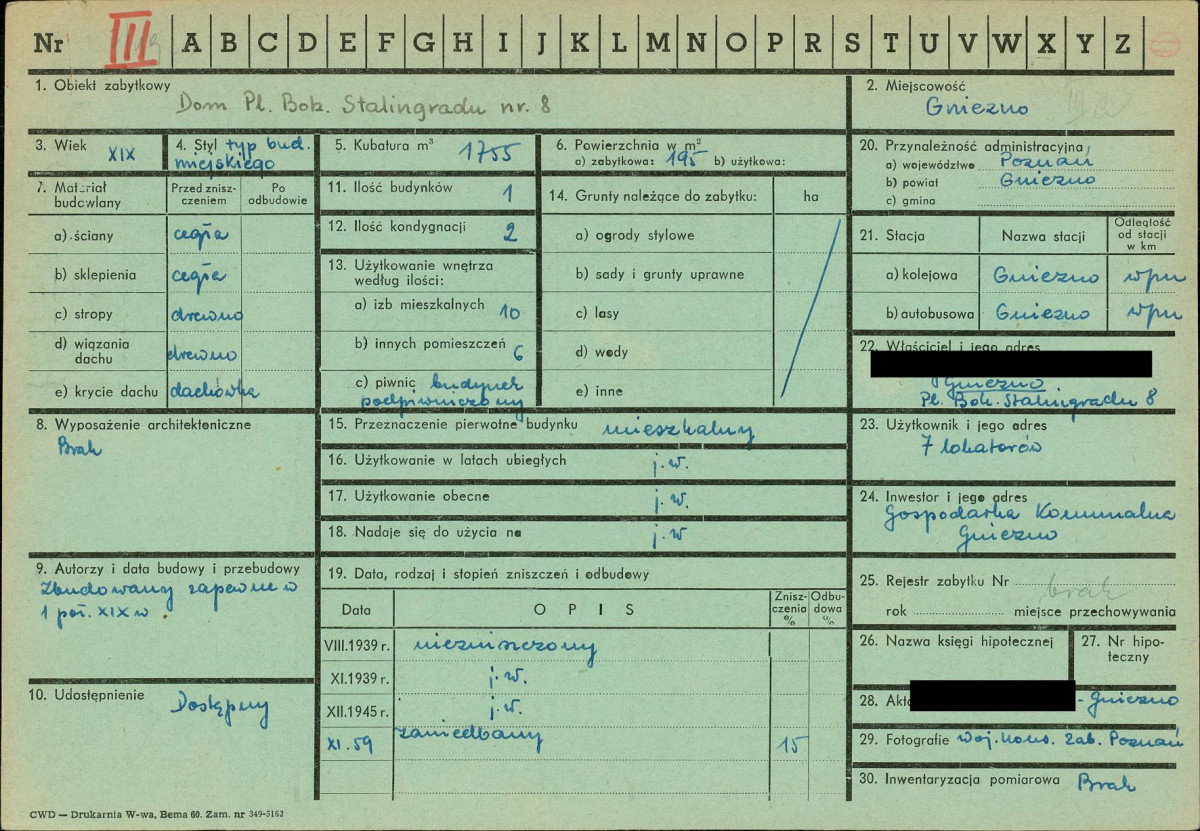 Nr III A B C D E F G H I J K L M N O P R S T U V W X Y Z
1. Obiekt zabytkowy
Dom Pl. Boh. Stalingradu nr. 8
2. Miejscowość
Gniezno
3. Wiek
XIX
4. Styl typ bud.
miejskiego
5. Kubatura m³ 1755
6. Powierzchnia w m²
a) zabytkowa: 195 b) użytkowa:
20. Przynależność administracyjna
a) województwo Poznań
b) powiat Gniezno
c) gmina
7. Materiał
budowlany
Przed znisz-
czeniem
Po
odbudowie
a) ściany cegła
b) sklepienia cegła
c) stropy drewno
d) wiązania
dachu drewno
e) krycie dachu dachówka
11. Ilość budynków 1
12. Ilość kondygnacji 2
13. Użytkowanie wnętrza
według ilości:
a) izb mieszkalnych 10
b) innych pomieszczeń 6
c) piwnic budynek
podpiwniczony
14. Grunty należące do zabytku: ha
a) ogrody stylowe
b) sady i grunty uprawne
c) lasy
d) wody
e) inne
21. Stacja
Nazwa stacji
Odległość
od stacji
w km
a) kolejowa Gniezno wpm
b) autobusowa Gniezno wpm
22. Właściciel i jego adres
Gniezno
Pl. Boh. Stalingradu 8
8. Wyposażenie architektoniczne
Brak
15. Przeznaczenie pierwotne budynku mieszkalny
16. Użytkowanie w latach ubiegłych j.w.
17. Użytkowanie obecne j.w.
18. Nadaje się do użycia na j.w
23. Użytkownik i jego adres
7 lokatorów
24. Inwestor i jego adres
Gospodarka Komunalna
Gniezno
9. Autorzy i data budowy i przebudowy
Zbudowany zapewne w
1 poł. XIX w
19. Data, rodzaj i stopień zniszczeń i odbudowy
Data
OPIS
Znisz-
czenia
%
Odbu-
dowa
%
VIII.1939 r. niezniszczony
XI.1939 r. j.w.
XII.1945 r. j.w.
XI.59 zaniedbany 15
25. Rejestr zabytku Nr brak
rok miejsce przechowywania
26. Nazwa księgi hipotecznej
27. Nr hipo-
teczny
10. Udostępnienie Dostępny
28. Akta - Gniezno
29. Fotografie Woj. Kons. Zab. Poznań
30. Inwentaryzacja pomiarowa Brak
CWD — Drukarnia W-wa, Bema 60. Zam. nr 349-5162